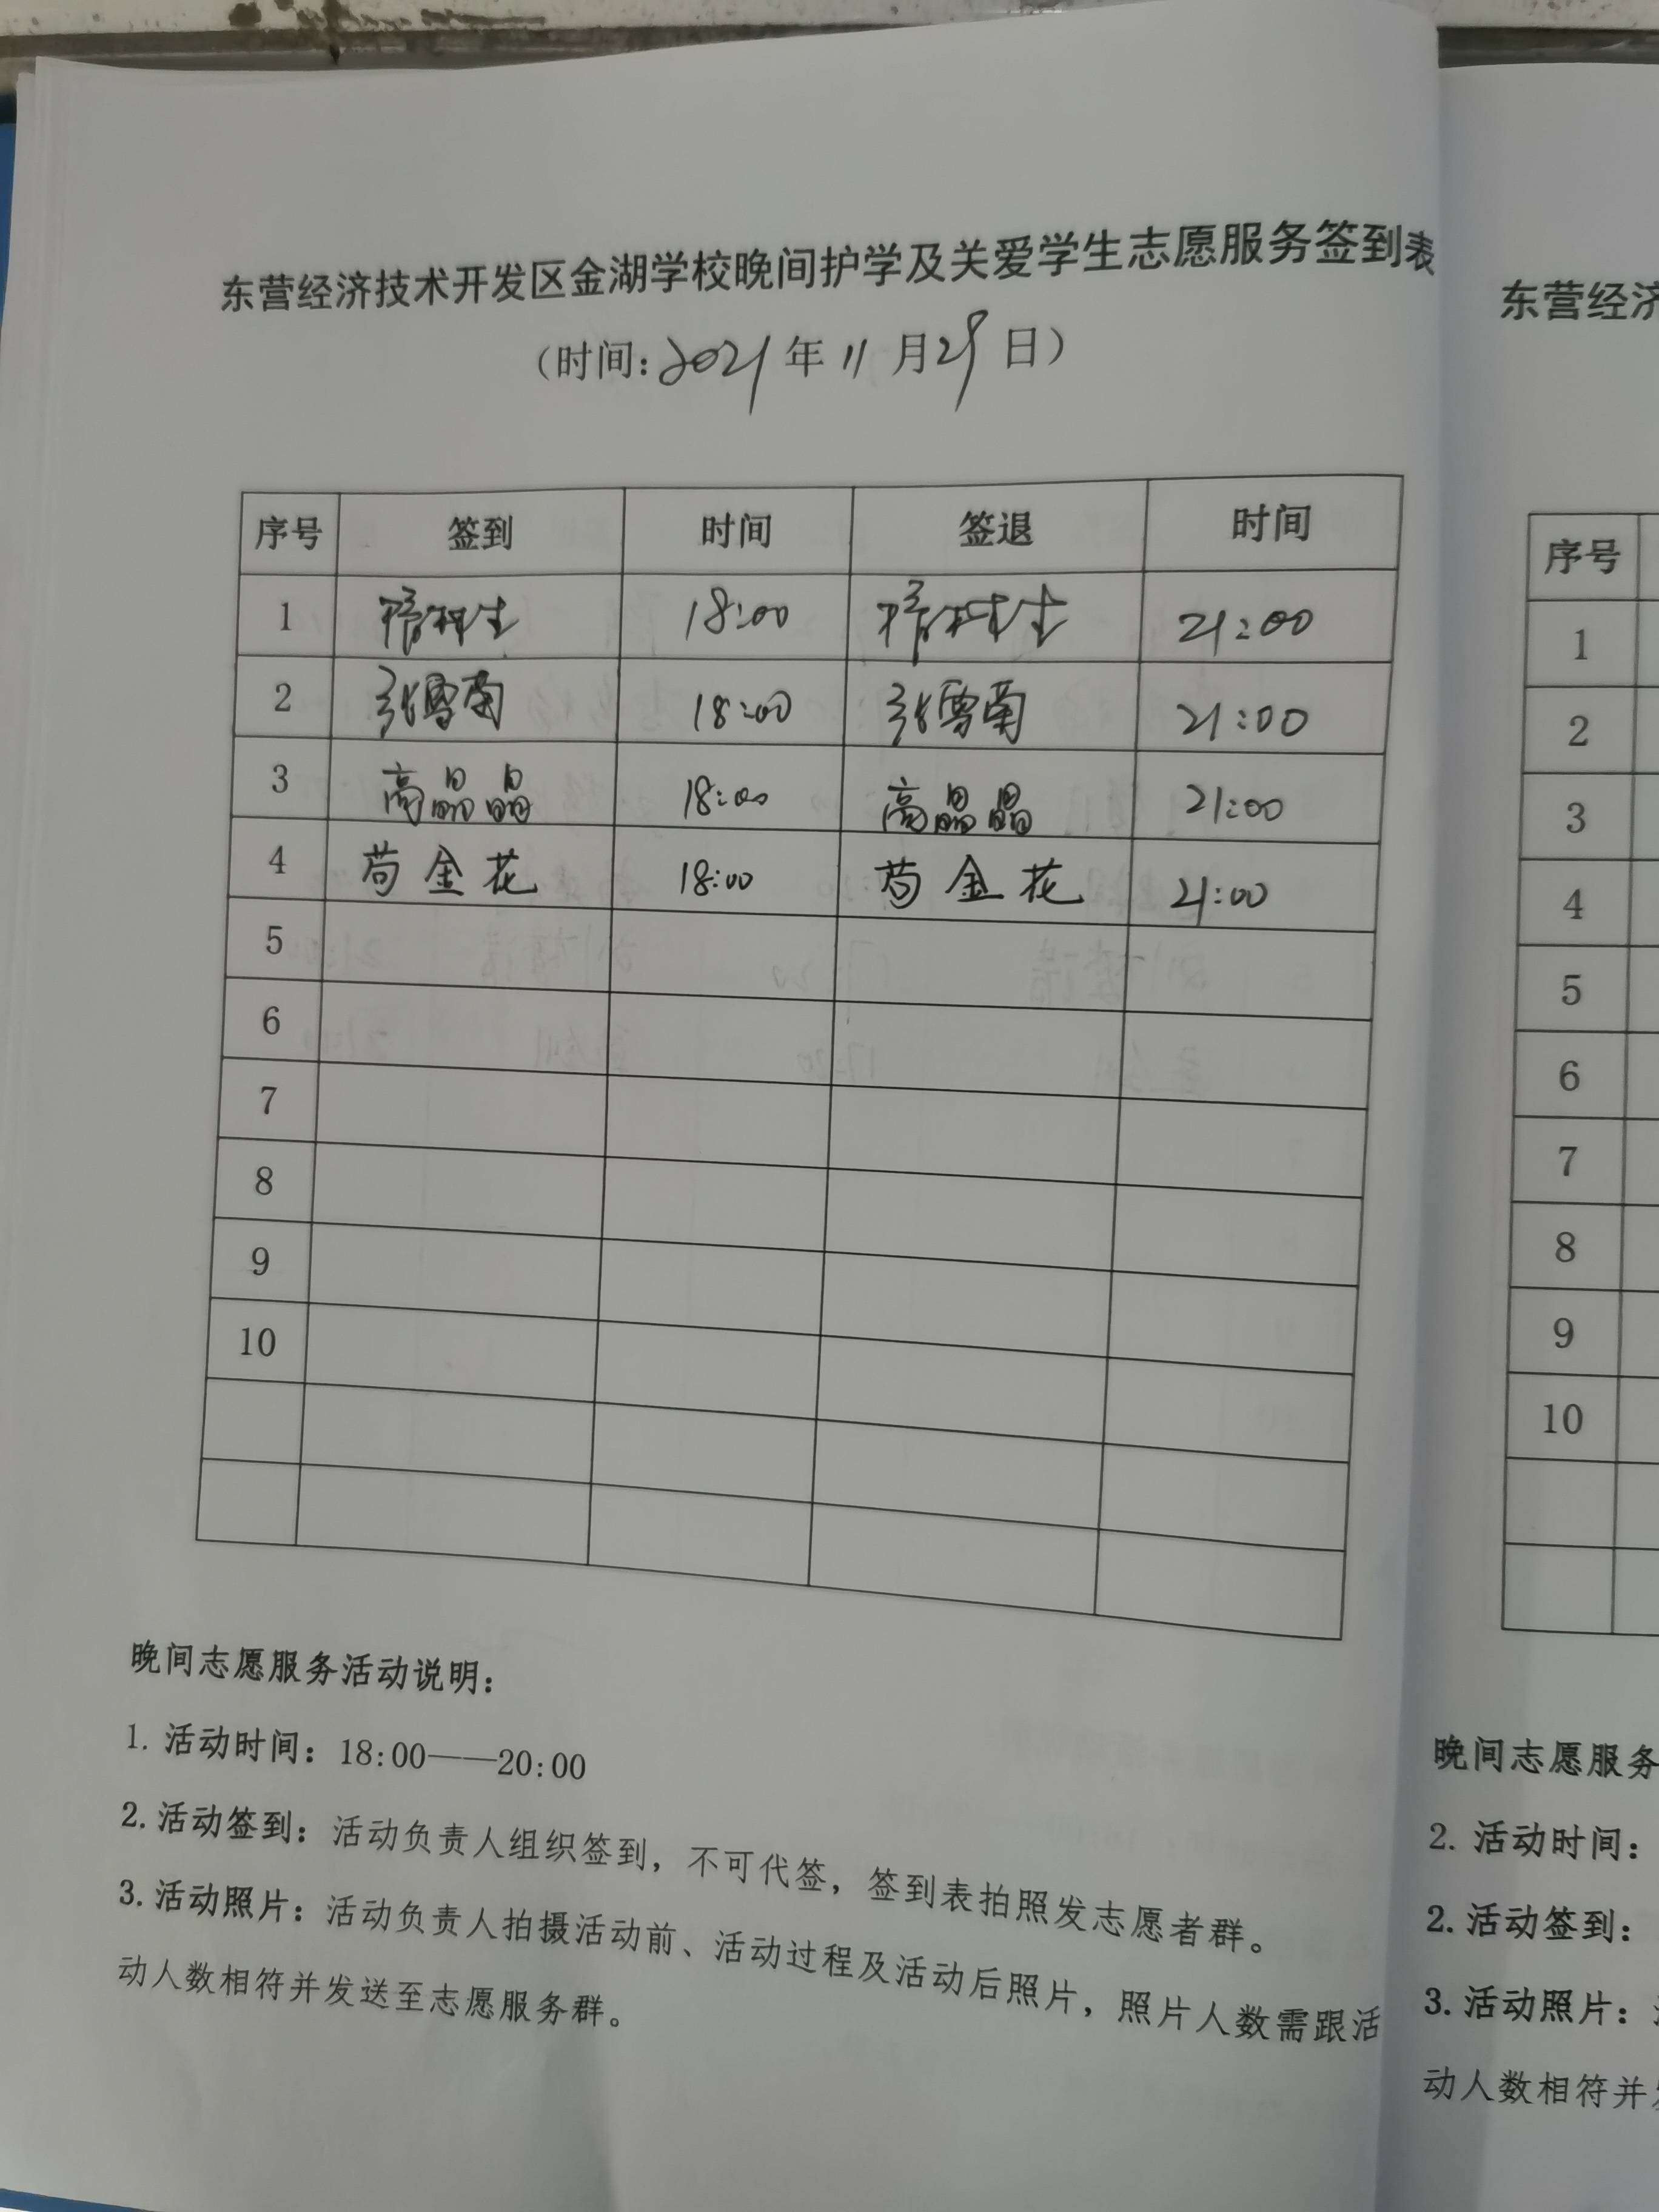 东营经济技术开发区金湖学校晚间护学及关爱学生志愿服务签到表
（时间：2021年11月29日）
序号 签到 时间 签退 时间
1 18:00 21:00
2 张雪南 18:00 张雪南 21:00
3 高晶晶 18:00 高晶晶 21:00
4 苟金花 18:00 苟金花 21:00
5
6
7
8
9
10
晚间志愿服务活动说明：
1. 活动时间：18:00——20:00
2. 活动签到：活动负责人组织签到，不可代签，签到表拍照发志愿者群。
3. 活动照片：活动负责人拍摄活动前、活动过程及活动后照片，照片人数需跟活
动人数相符并发送至志愿服务群。
东营经济
序号
1
2
3
4
5
6
7
8
9
10
晚间志愿服务
2. 活动时间：
2. 活动签到：
3. 活动照片：
动人数相符并